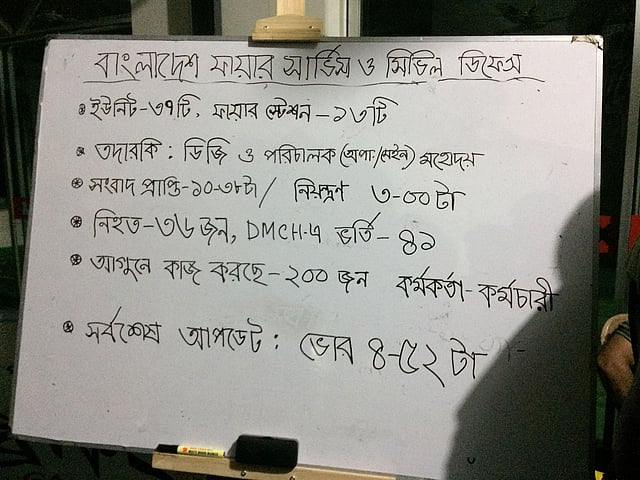 বাংলাদেশ ফায়ার সার্ভিস ও সিভিল ডিফেন্স
ইউনিট-৩৭টি, ফায়ার স্টেশন-১৩টি
তদারকি : ডিজি ও পরিচালক (অপাঃ/মেইন) মহোদয়
সংবাদ প্রাপ্তি-১০-৩৮টা / নিয়ন্ত্রণ ৩-০০টা
নিহত-৩৬ জন, DMCH-এ ভর্তি-৪১
আগুনে কাজ করছে-২০০ জন কর্মকর্তা-কর্মচারী
সর্বশেষ আপডেট : ভোর ৪-৫২ টা